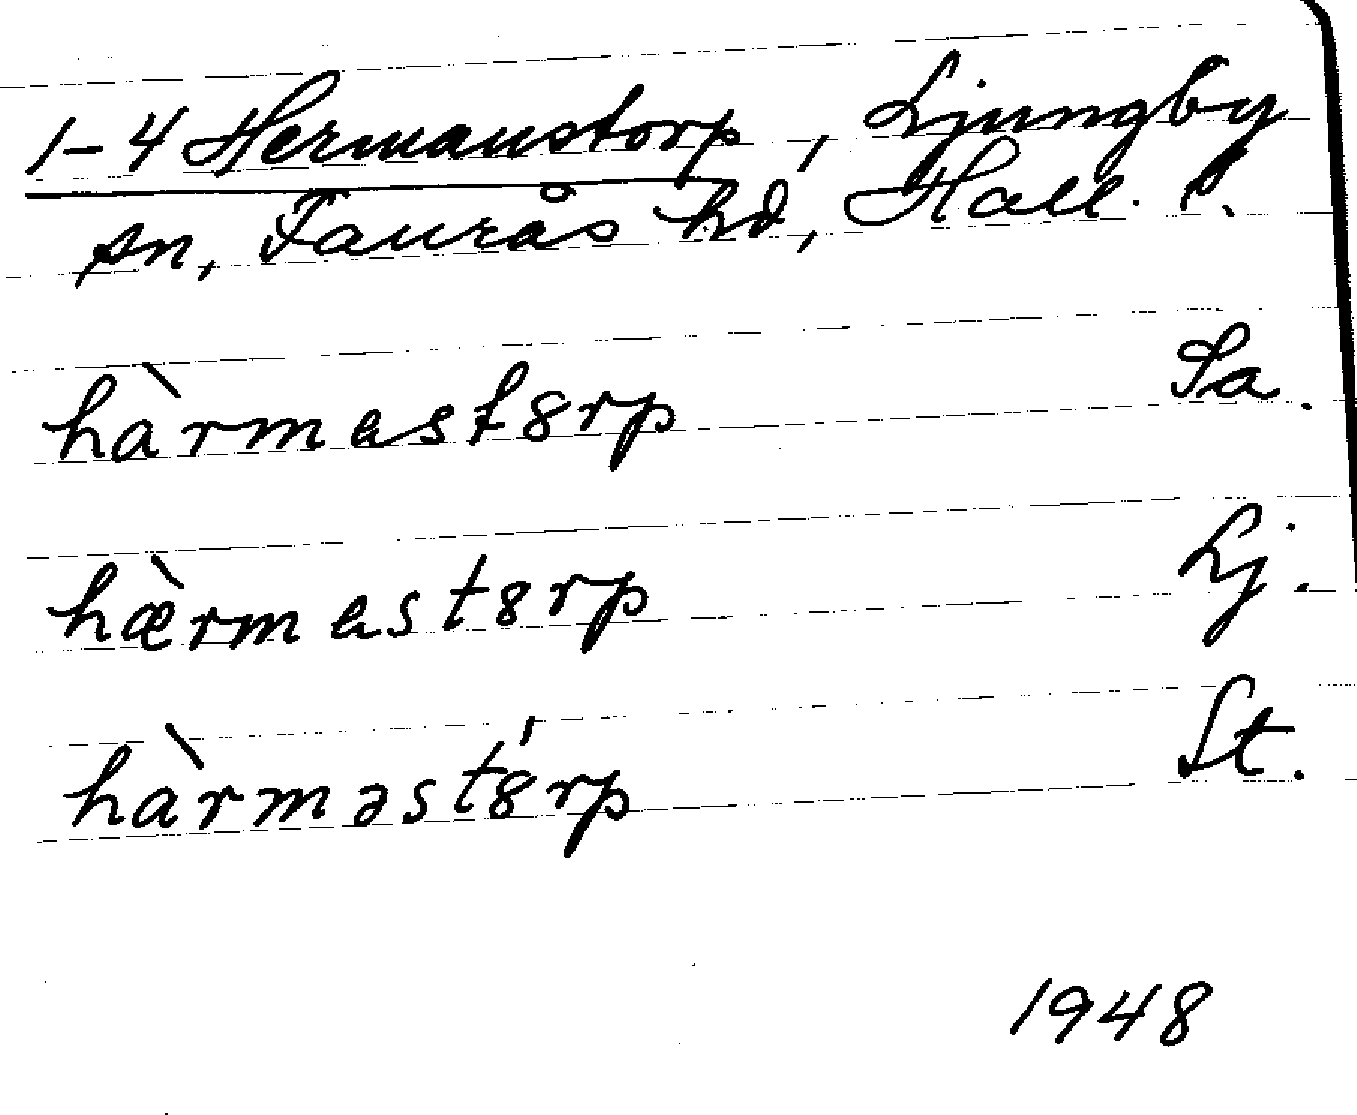 1-4 Hermanstorp, Ljungby
sn, Faurås hd, Hall. l.
hàrmast8rp Sa.
hæ̀rmast8rp Lj.
hàrməst8́rp St.
1948